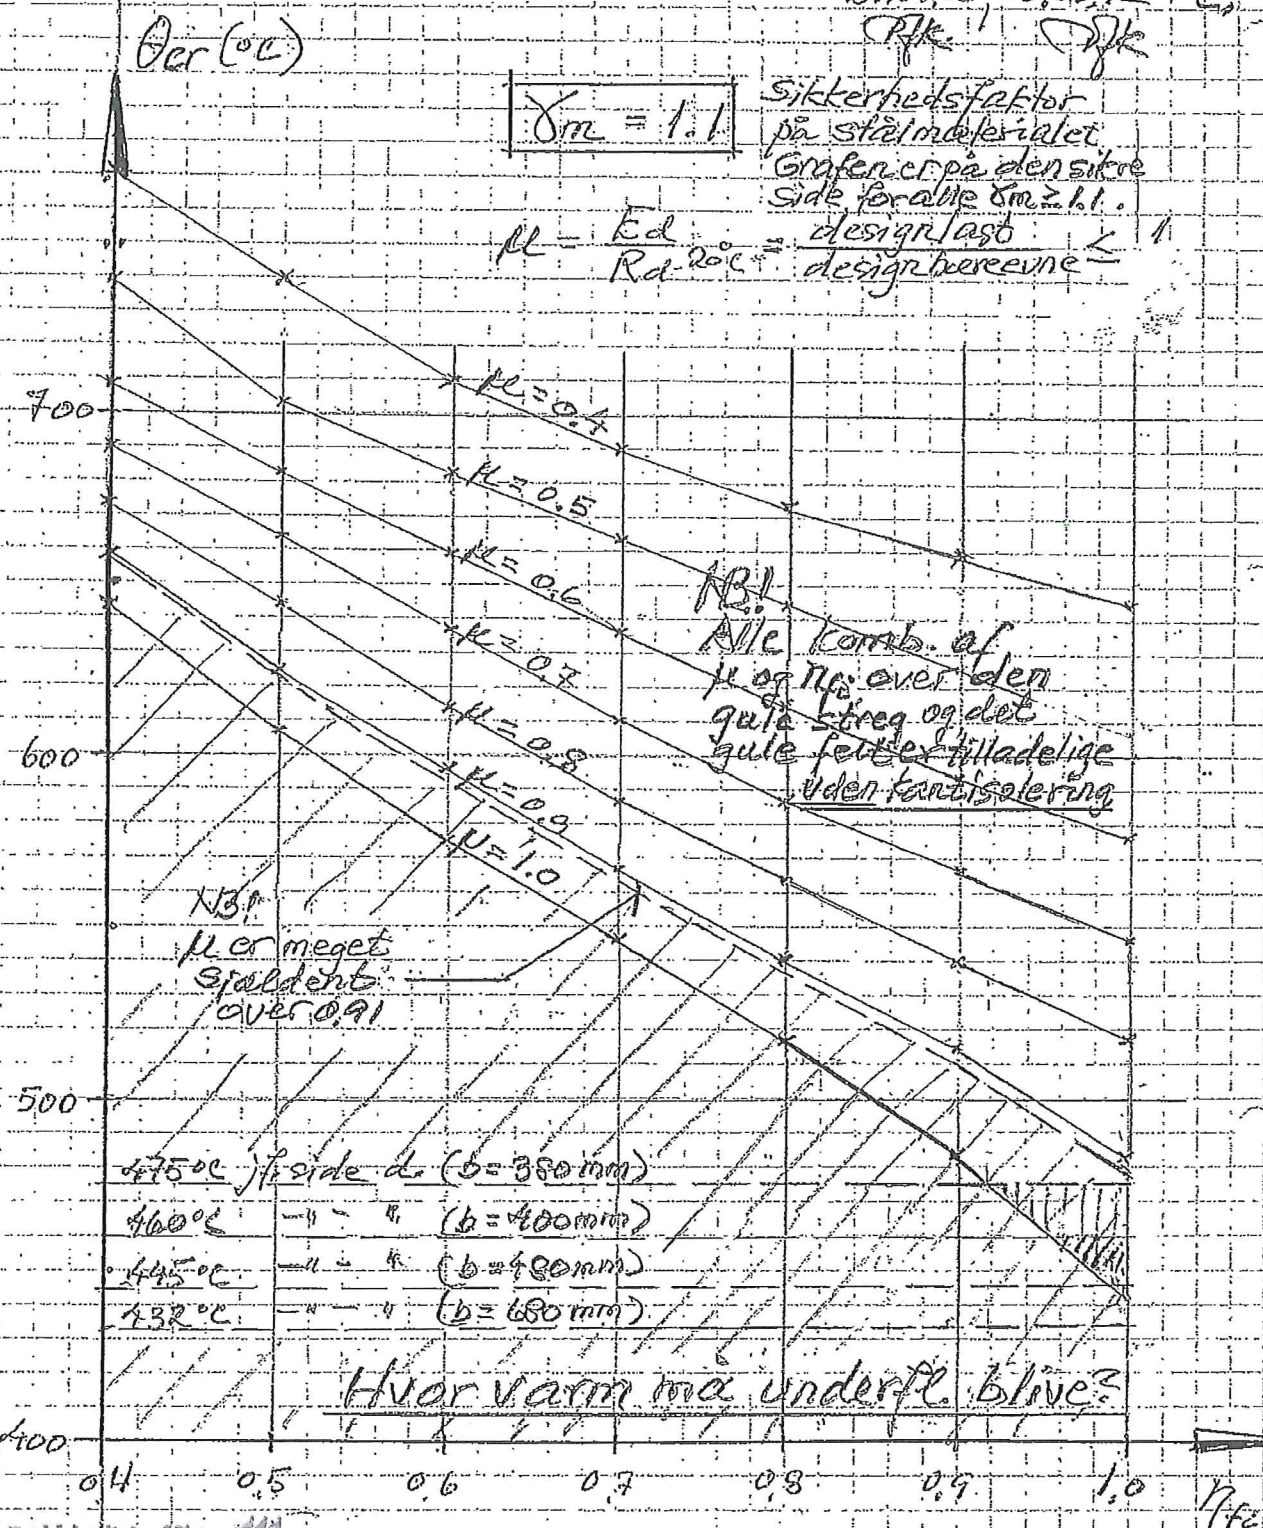 θcr (°C)
γm = 1.1
Sikkerhedsfaktor
på stålmaterialet
Grafen er på den sikre
side for alle γm ≥ 1.1.
μ = Ed / Rd 20°C = designlast / designbæreevne ≤ 1
700
μ = 0.4
μ = 0.5
μ = 0.6
μ = 0.7
μ = 0.8
μ = 0.9
μ = 1.0
NB!
Alle komb. af
μ og ηfi over den
gule streg og det
gule felt er tilladelige
uden kantisolering
600
NB!
μ er meget
sjældent
over 0.91
500
475°C jf. side d. (b=380mm)
460°C -"- " (b=400mm)
445°C -"- " (b=480mm)
432°C -"- " (b=680mm)
Hvor varm må underfl. blive?
400
0.4 0.5 0.6 0.7 0.8 0.9 1.0 ηfi